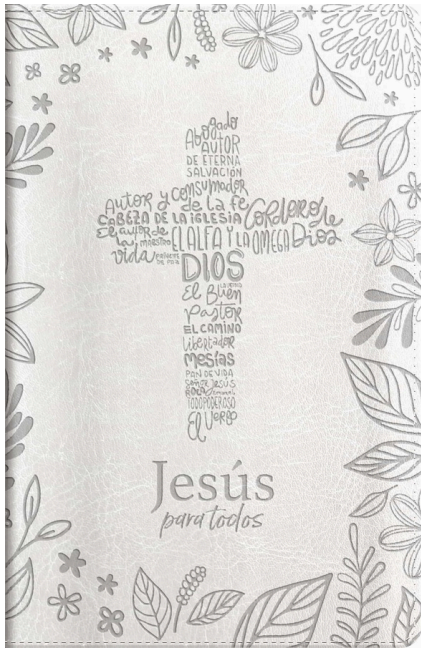 Abogado
AUTOR
DE ETERNA
SALVACIÓN
Autor y consumador
de la fe
CABEZA DE LA IGLESIA
Cordero de
Dios
El autor de
la vida
MAESTRO
EL ALFA Y LA OMEGA
DIOS
El Buen
Pastor
EL CAMINO
libertador
mesías
PAN DE VIDA
SEÑOR JESÚS
ROCA
TODOPODEROSO
El Verbo
Jesús
para todos